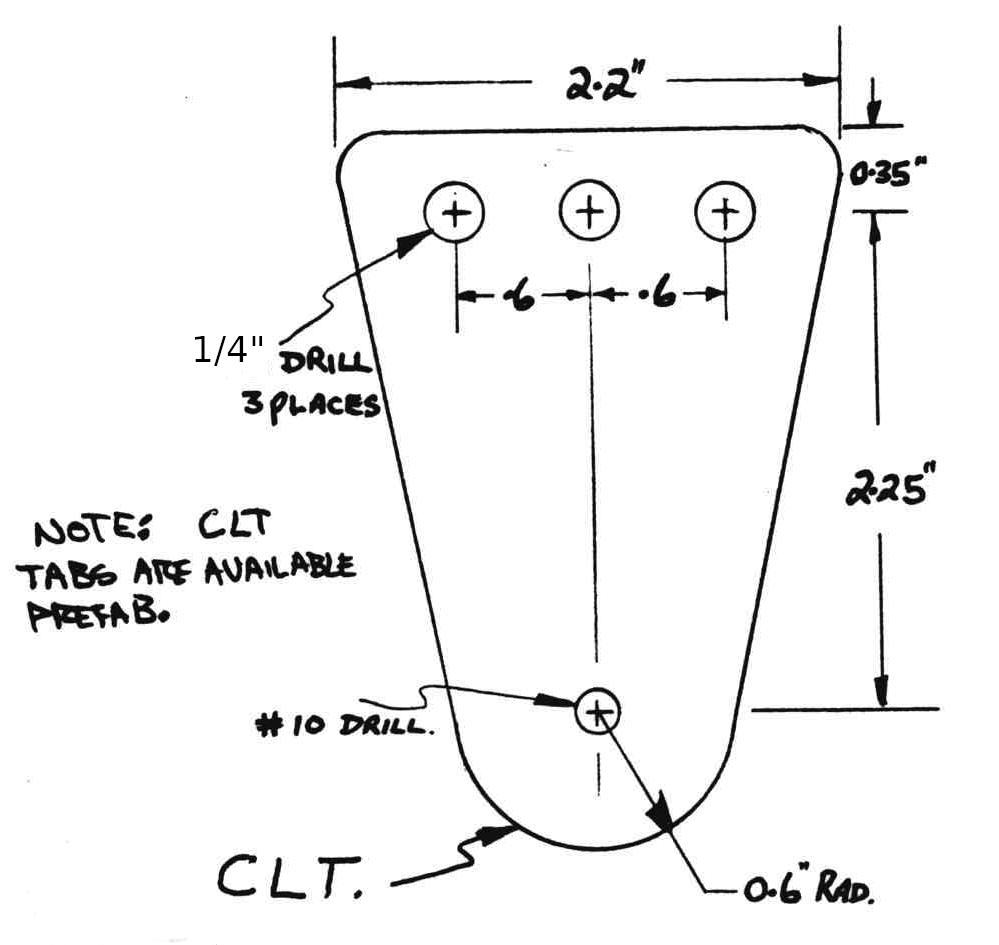 2.2"
0.35"
.6
.6
1/4" DRILL
3 PLACES
2.25"
NOTE: CLT
TABS ARE AVAILABLE
PREFAB.
#10 DRILL.
CLT.
0.6" RAD.